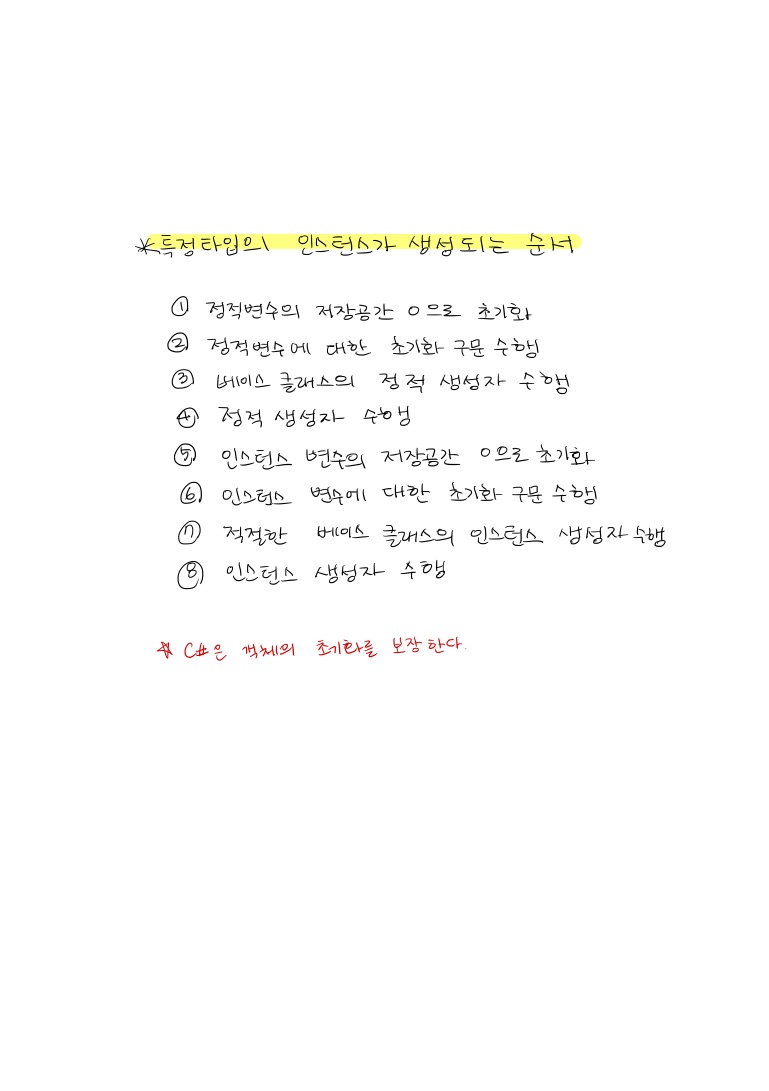 *특정타입의 인스턴스가 생성되는 순서
① 정적변수의 저장공간 0으로 초기화
② 정적변수에 대한 초기화 구문 수행
③ 베이스 클래스의 정적 생성자 수행
④ 정적 생성자 수행
⑤ 인스턴스 변수의 저장공간 0으로 초기화
⑥ 인스턴스 변수에 대한 초기화 구문 수행
⑦ 적절한 베이스 클래스의 인스턴스 생성자 수행
⑧ 인스턴스 생성자 수행
☆ C#은 객체의 초기화를 보장한다.